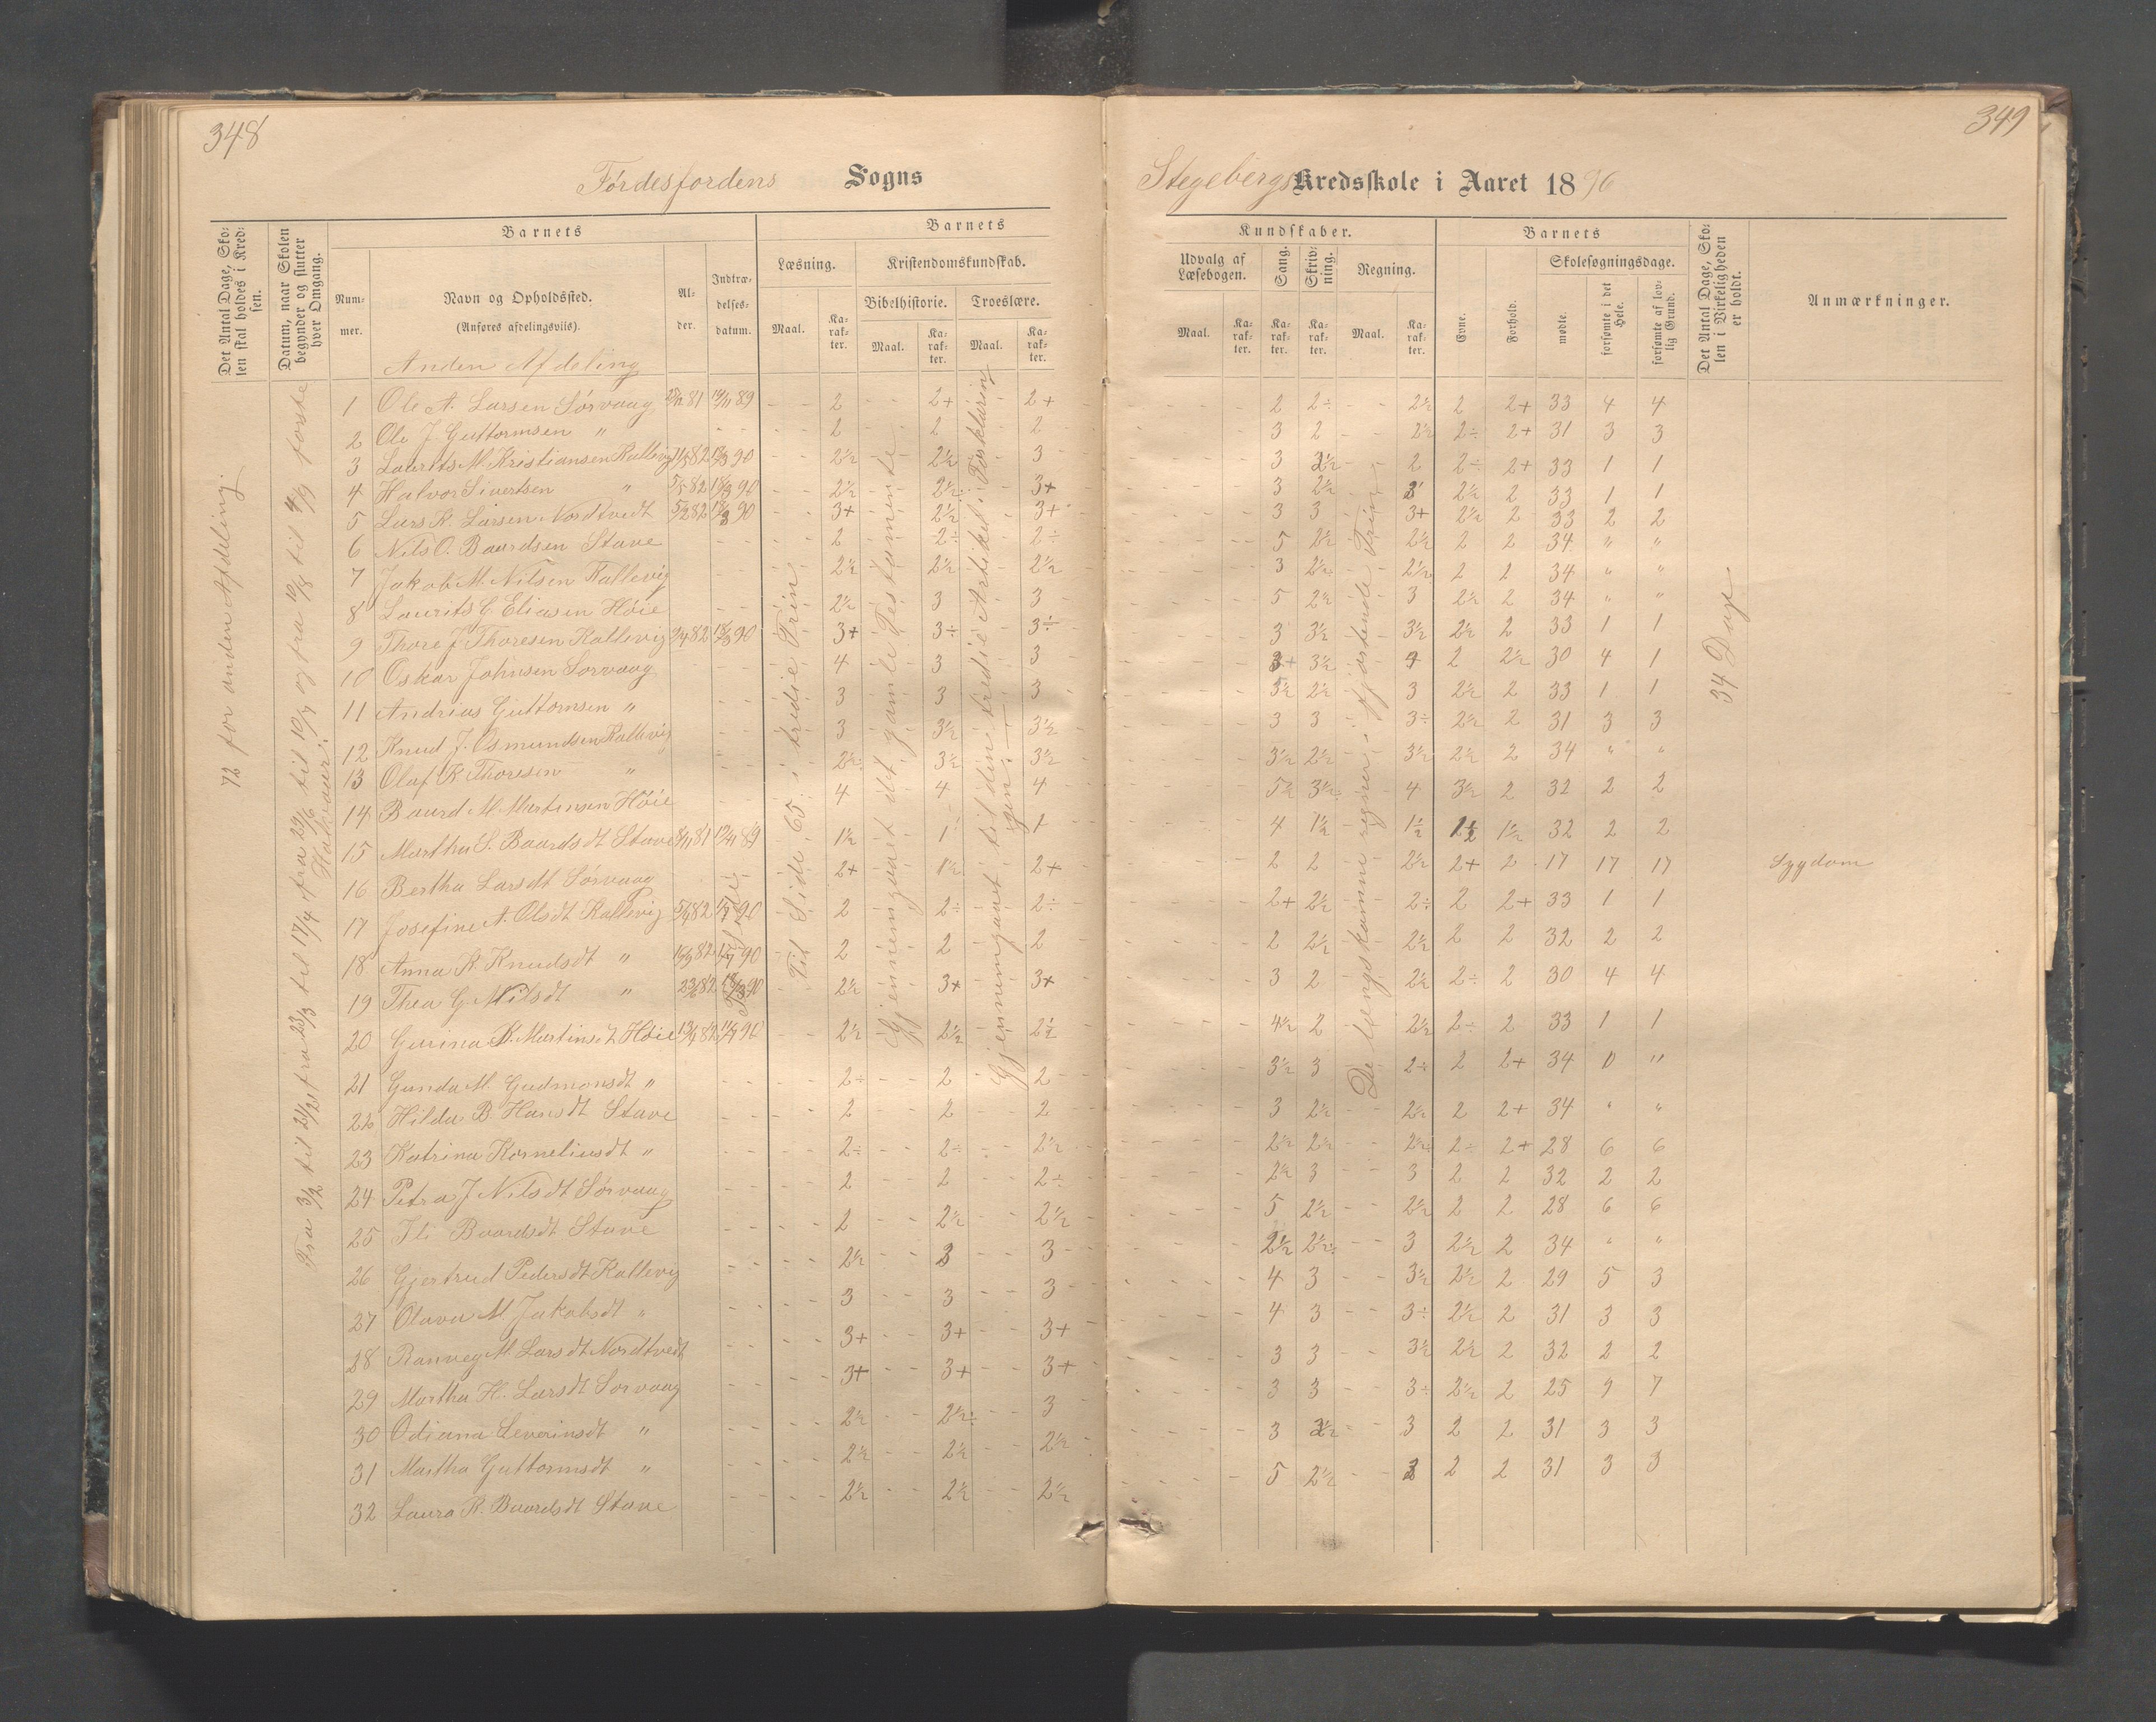 348
Fördesfjordens Sogns
Det Antal Dage, Skolen skal holdes i Kredsen.
Datum, naar Skolen begynder og slutter hver Omgang.
Barnets
Nummer.
Navn og Opholdssted.
(Anføres afdelingsviis).
Alder.
Indtrædelsesdatum.
Barnets
Læsning.
Kristendomskundskab.
Bibelhistorie.
Troeslære.
Maal.
Karakter.
Maal.
Karakter.
Maal.
Karakter.
72 for anden Afdeling.
Anden Afdeling
1 Ole A. Larsen Sörvaag 2 2+ 2+
2 Ole J. Guttormsen " 2 2 2
3 Laurits M. Kristiansen Kallevig 2½ 2½ 3
4 Halvor Sivertsen " 2½ 2½ 3+
5 Lars K. Larsen Nordtvedt 3+ 2½ 3+
6 Nils O. Baardsen Stave 2 2÷ 2÷
7 Jakob M. Nilsen Kallevig 2½ 2½ 2½
8 Laurits E. Eliasen Höie 2½ 3 3
9 Thore J. Thoresen Kallevig 3+ 3÷ 3÷
10 Oskar Johnsen Sörvaag 4 3 3
11 Andreas Guttormsen " 3 3 3
12 Knud J. Osmundsen Kallevig 3 3½ 3½
13 Olaf K. Thoresen " 2½ 3½ 3½
14 Baard M. Martinsen Höie 4 4 4
15 Martha S. Baardsdt Stave 1½ 1 1
16 Bertha Larsdt Sörvaag 2+ 1½ 2+
17 Josefine A. Olsdt Kallevig 2 2÷ 2÷
18 Anna R. Knudsdt " 2 2 2
19 Thea G. Nilsdt " 2½ 3+ 3+
20 Gurina K. Martinsdt Höie 2½ 2½ 2½
21 Gunda M. Gudmonsdt " 2÷ 2 2
22 Hilda B. Hansdt Stave 2 2 2
23 Katrina Korneliusdt " 2÷ 2÷ 2½
24 Petra J. Nilsdt Sörvaag 2 2 2÷
25 Baardsdt Stave 2 2½ 2½
26 Gjertrud Pedersdt Kallevig 2½ 3 3
27 Olava M. Jakobsdt " 3 3 3
28 Ranveg M. Larsdt Nordtvedt 3+ 3+ 3+
29 Martha H. Larsdt Sörvaag 3+ 3+ 3+
30 Odiana Severinsdt " 2½ 2½÷ 3
31 Martha Guttormsdt " 2½ 2½ 2½
32 Laura R. Baardsdt Stave 2½ 2½ 2½
Til Side 65 i tredie Trin
Gjennemgaaet det gamle Testamente
Gjennemgaaet til den tredie Artikel i Forklaringen.
349
Stegebergs Kredsskole i Aaret 1890
Kundskaber.
Udvalg af Læsebogen.
Sang.
Skrivning.
Regning.
Maal.
Karakter.
Karakter.
Karakter.
Maal.
Karakter.
Barnets
Evne.
Forhold.
Skolesøgningsdage.
mødte.
forsømte i det Hele.
forsømte af lovlig Grund.
Det Antal Dage, Skolen i Virkeligheden er holdt.
Anmærkninger.
2 2÷ 2½ 2 2+ 33 4 4
3 2 2½ 2÷ 2+ 31 3 3
3 2½ 2 2÷ 2+ 33 1 1
3 2½ 3 2½ 2 33 1 1
3 3 3+ 2½ 2 33 2 2
5 2½ 2½ 2 2 34 " "
3 2½ 2½ 2 2 34 " "
5 2½ 3 2½ 2 34 " "
3 3½ 3½ 2½ 2 33 1 1
3½ 4 2 2½ 30 4 1
3½ 2½ 3 2½ 2 33 1 1
3 3 3÷ 2½ 2 31 3 3
3½ 2½ 3½ 2½ 2 34 " "
5½ 3½ 4 3½ 2 32 2 2
4 1½ 1½ 1½ 1½ 32 2 2
2 2 2½ 2+ 2 17 17 17 Sygdom
2+ 2½ 2÷ 2 2+ 33 1 1
2 2½ 2½ 2 2 32 2 2
3 2 2½ 2÷ 2 30 4 4
4½ 2 2½ 2÷ 2 33 1 1
3½ 3 2÷ 2 2+ 34 0 "
3 2½ 2½ 2 2+ 34 " "
2½ 2½ 2½ 2÷ 2+ 28 6 6
2½ 3 3 2 2 32 2 2
5 2½ 2½ 2 2 28 6 6
2½ 2½ 3 2½ 2 34 " "
4 3 3½ 2½ 2 29 5 3
4 3 3÷ 2½ 2 31 3 3
3 3 3½ 2½ 2 32 2 2
3 3 3÷ 2½ 2 25 9 7
3 2½ 3 2 2 31 3 3
5 2½ 3 2 2 31 3 3
34 Dage.